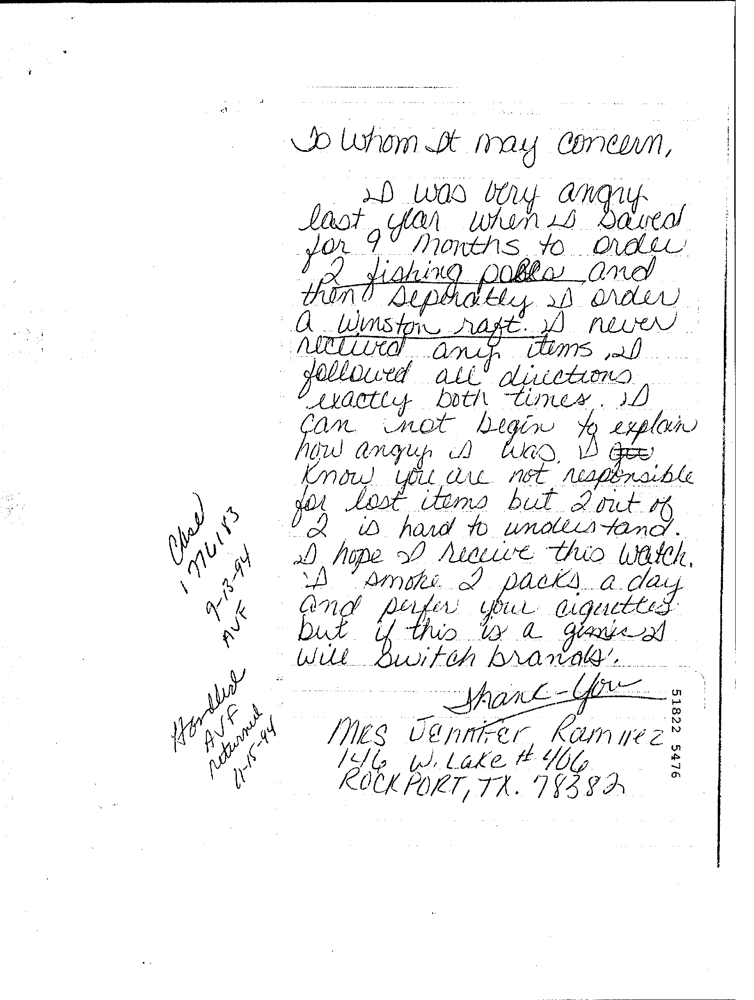 To Whom It may concern,
I was very angry
last year when I saved
for 9 months to order
2 fishing poles and
then seperatley I order
a Winston raft. I never
received any items, I
followed all directions
exactly both times. I
can not begin to explain
how angry I was. I
know you are not responsible
for lost items but 2 out of
2 is hard to understand.
I hope I receive this watch.
I smoke 2 packs a day
and perfer your cigerettes
but if this is a gimic I
will switch brands.
Thank-You
MRS Jennifer Ramirez
146 W. Lake # 406
ROCKPORT, TX. 78382
Case
1776183
9-13-94
AVF
Handled
AVF
returned
11-15-94
51822 5476